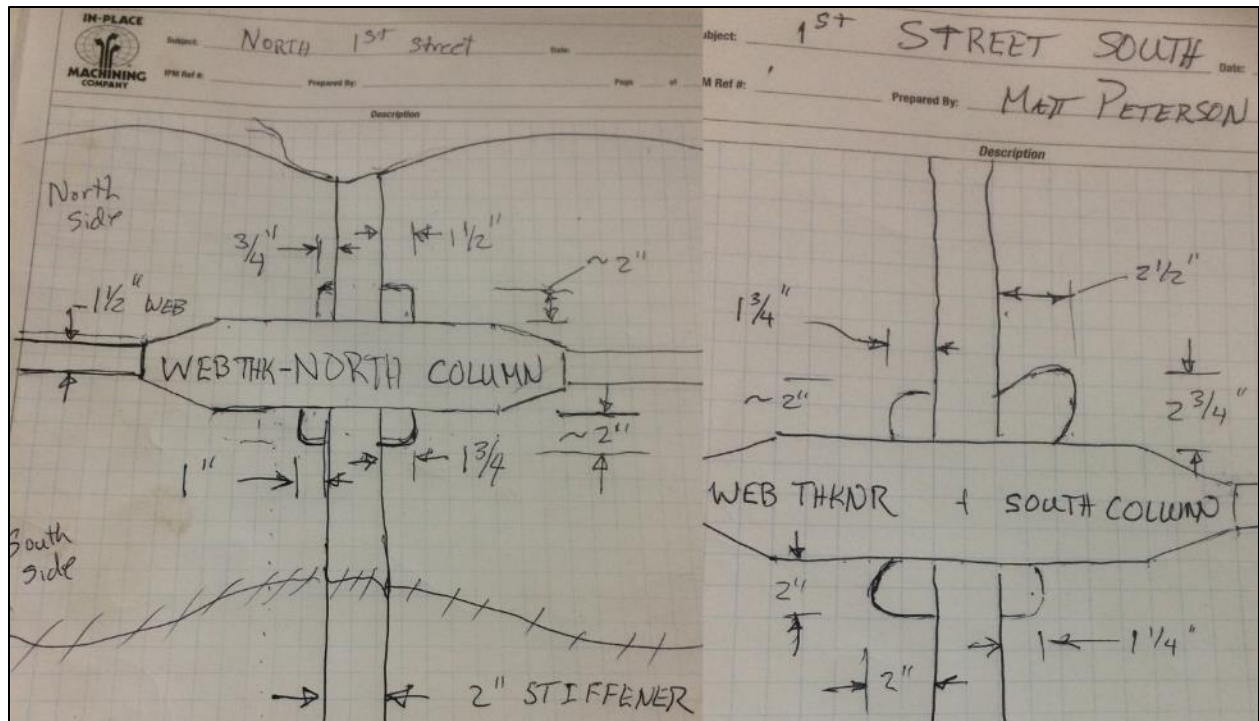 IN-PLACE
MACHINING
COMPANY
Subject: NORTH 1ST Street Date:
IPM Ref #: Prepared By: Page of
Description
North
Side
3/4"
1 1/2"
~2"
1 1/2" WEB
WEB THK-NORTH COLUMN
~2"
1"
1 3/4
South
side
2" STIFFENER
ubject: 1ST STREET SOUTH Date:
M Ref #: Prepared By: MATT PETERSON
Description
2 1/2"
1 3/4"
~2"
2 3/4"
WEB THKNR + SOUTH COLUMN
2"
1 1/4"
2"